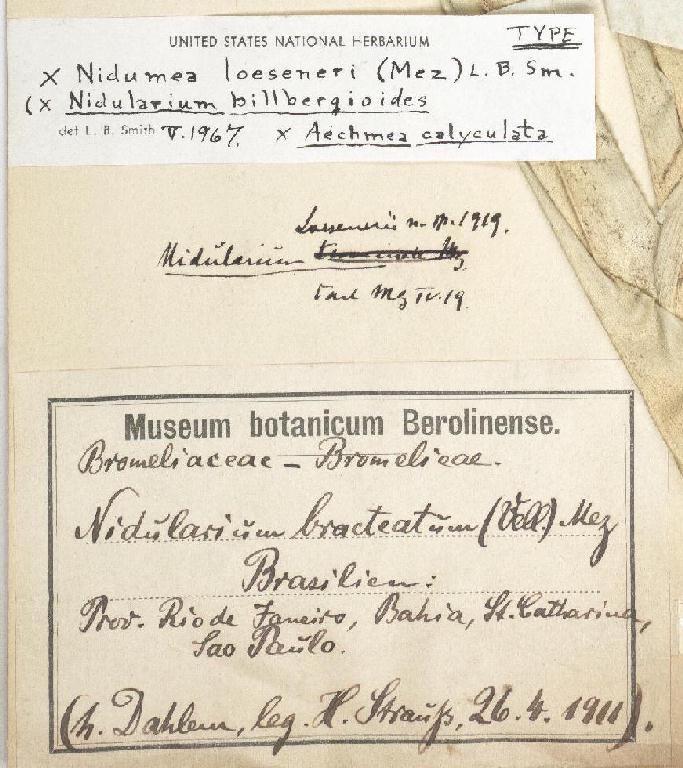 UNITED STATES NATIONAL HERBARIUM
TYPE
x Nidumea loeseneri (Mez) L. B. Sm.
(x Nidularium billbergioides
det L. B. Smith V.1967. x Aechmea calyculata
Loesenerii n. sp. 1919.
Nidularium
Carl Mez IV.19.
Museum botanicum Berolinense.
Bromeliaceae – Bromelieae.
Nidularium bracteatum (Vell.) Mez
Brasilien:
Prov. Rio de Janeiro, Bahia, St. Catharina,
Sao Paŭlo.
(h. Dahlem, leg. H. Strauß, 26. 4. 1911).